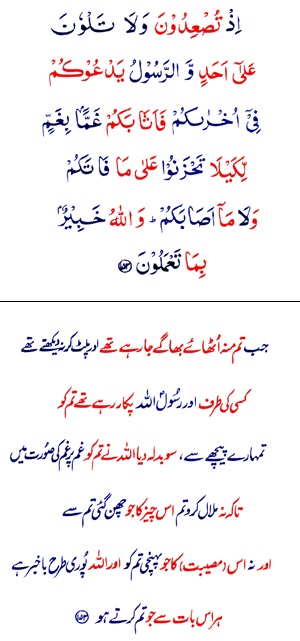 اِذْ تُصْعِدُوْنَ وَلَا تَلْوٗنَ
عَلٰٓى اَحَدٍ وَّ الرَّسُوْلُ يَدْعُوْكُمْ
فِىْٓ اُخْرٰٮكُمْ فَاَثَابَكُمْ غَمًّاۢ بِغَمٍّ
لِّكَيْلَا تَحْزَنُوْا عَلٰى مَا فَاتَكُمْ
وَلَا مَاۤ اَصَابَكُمْ ؕ وَ اللّٰهُ خَبِيْرٌۢ
بِمَا تَعْمَلُوْنَ ﴿۱۵۳﴾
جب تم منہ اُٹھائے بھاگے جارہے تھے اور پلٹ کر نہ دیکھتے تھے
کسی کی طرف اور رسُولؐ اللہ پکار رہے تھے تم کو
تمہارے پیچھے سے، سو بدلہ دیا اللہ نے تم کو غم پر غم کی صُورت میں
تاکہ نہ ملال کرو تم اس چیز کا جو چھن گئی تم سے
اور نہ اس (مصیبت) کا جو پہنچی تم کو اور اللہ پُوری طرح باخبر ہے
ہر اس بات سے جو تم کرتے ہو ﴿۱۵۳﴾